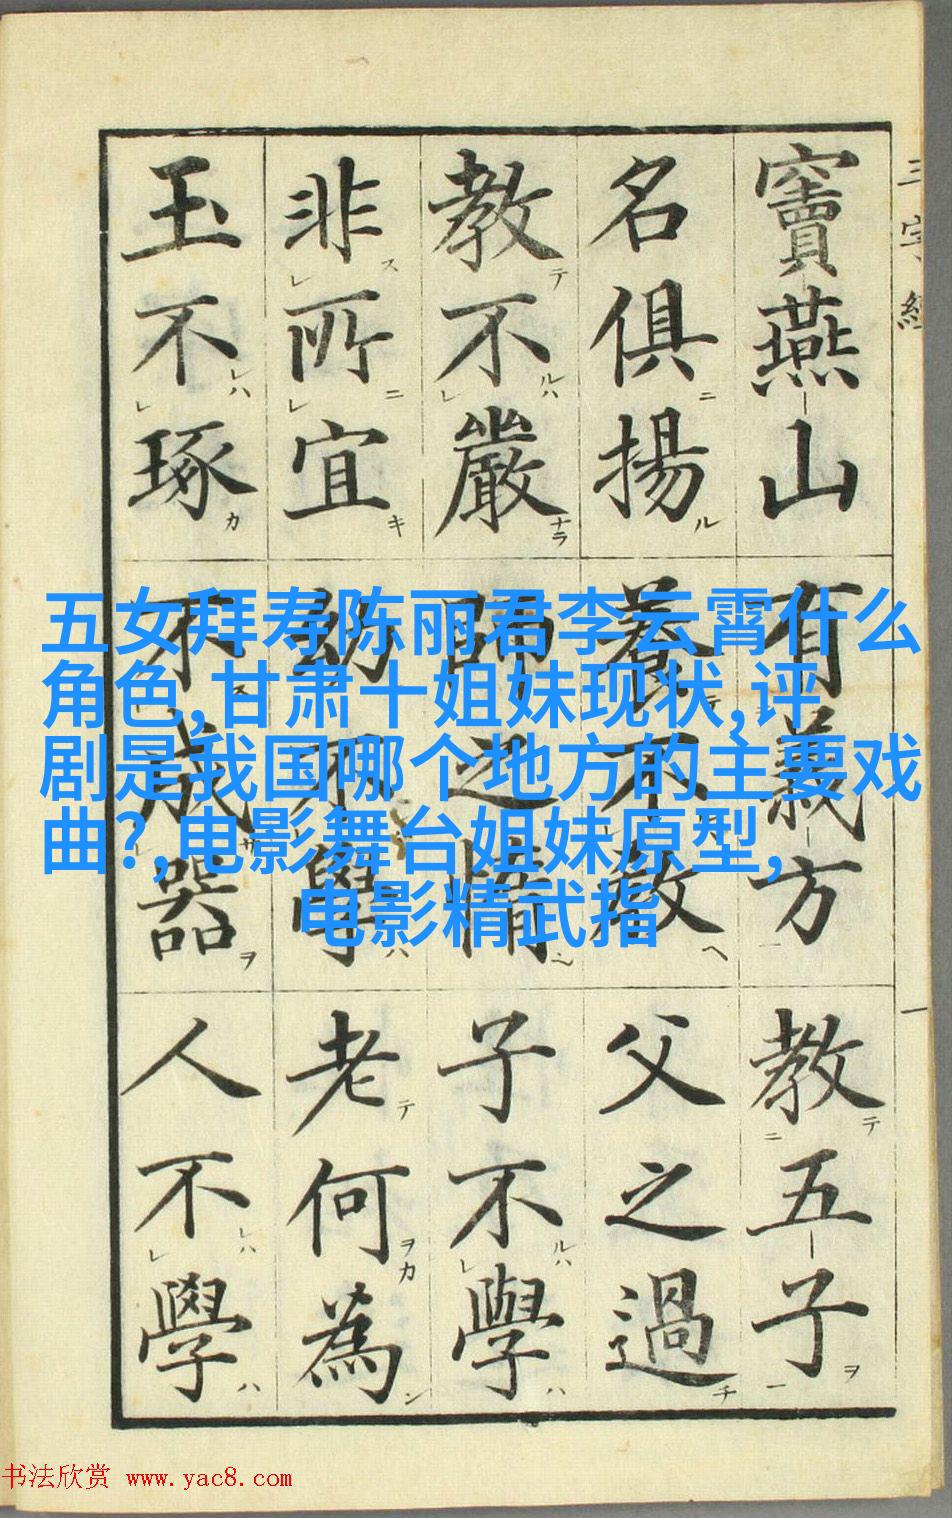 三字經
一
竇燕山有義方教五子
名俱揚養不教父之過
教不嚴師之惰子不學
非所宜幼不學老何為
玉不琢不成器人不學
五女拜寿陈丽君李云霄什么
角色,甘肃十姐妹现状,评
剧是我国哪个地方的主要戏
曲?,电影舞台姐妹原型,
电影精武指
书法欣赏 www.yac8.com